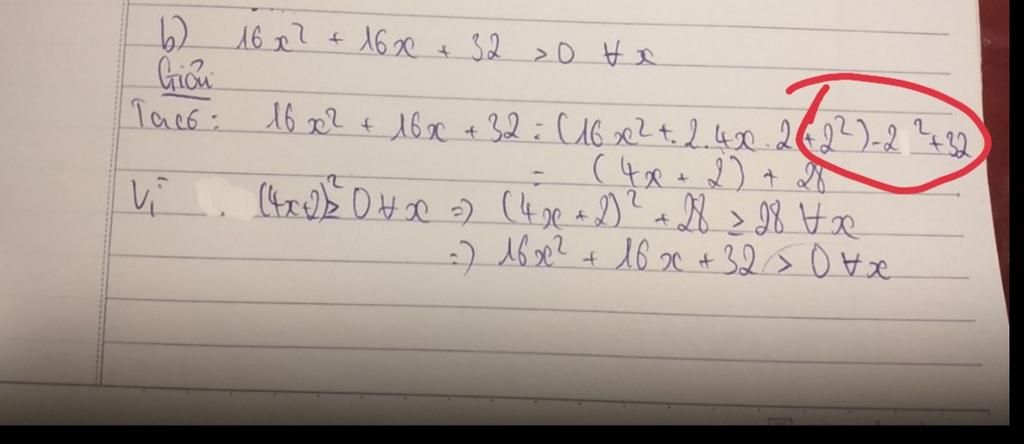 b) 16x² + 16x + 32 > 0 ∀ x
Giải
Ta có: 16x² + 16x + 32 = (16x² + 2.4x.2 + 2²) - 2² + 32
= (4x + 2) + 28
Vì (4x+2)² ≥ 0 ∀ x => (4x + 2)² + 28 ≥ 28 ∀ x
=> 16x² + 16x + 32 > 0 ∀ x